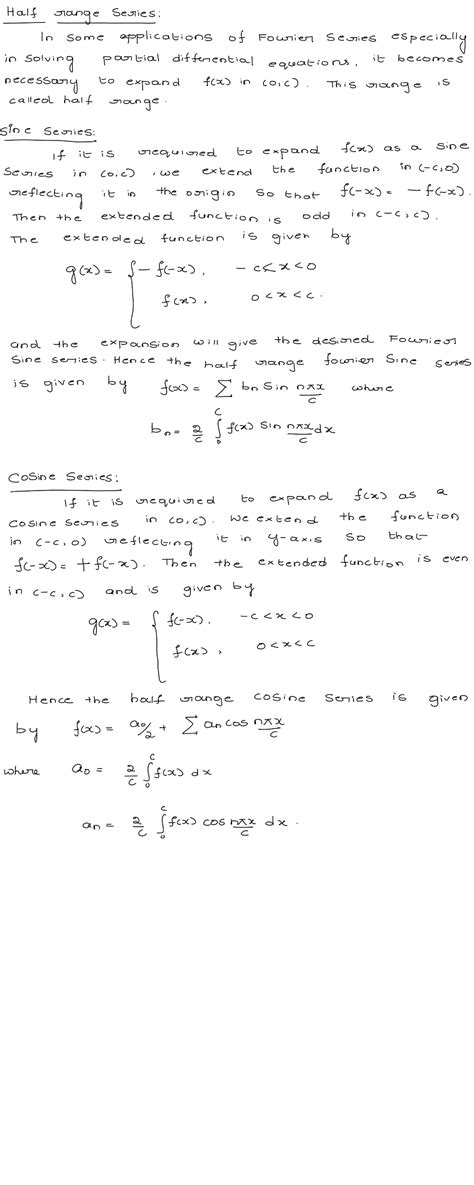 Half range Series:
In some applications of Fourier Series especially
in solving partial differential equations, it becomes
necessary to expand f(x) in (0,c). This range is
called half range.
Sine Series:
If it is required to expand f(x) as a Sine
Series in (0,c), we extend the function in (-c,0)
reflecting it in the origin so that f(-x) = -f(-x).
Then the extended function is odd in (-c,c).
The extended function is given by
g(x) = { -f(-x), -c<x<0
f(x), 0<x<c.
and the expansion will give the desired Fourier
Sine series. Hence the half range fourier Sine series
is given by f(x) = ∑ bn Sin nπx/c where
bn = 2/c ∫₀ᶜ f(x) Sin nπx/c dx
Cosine Series:
If it is required to expand f(x) as a
cosine series in (0,c). We extend the function
in (-c,0) reflecting it in y-axis so that
f(-x) = +f(-x). Then the extended function is even
in (-c,c) and is given by
g(x) = { f(-x), -c<x<0
f(x), 0<x<c
Hence the half range cosine series is given
by f(x) = a0/2 + ∑ an cos nπx/c
where a0 = 2/c ∫₀ᶜ f(x) dx
an = 2/c ∫₀ᶜ f(x) cos nπx/c dx.